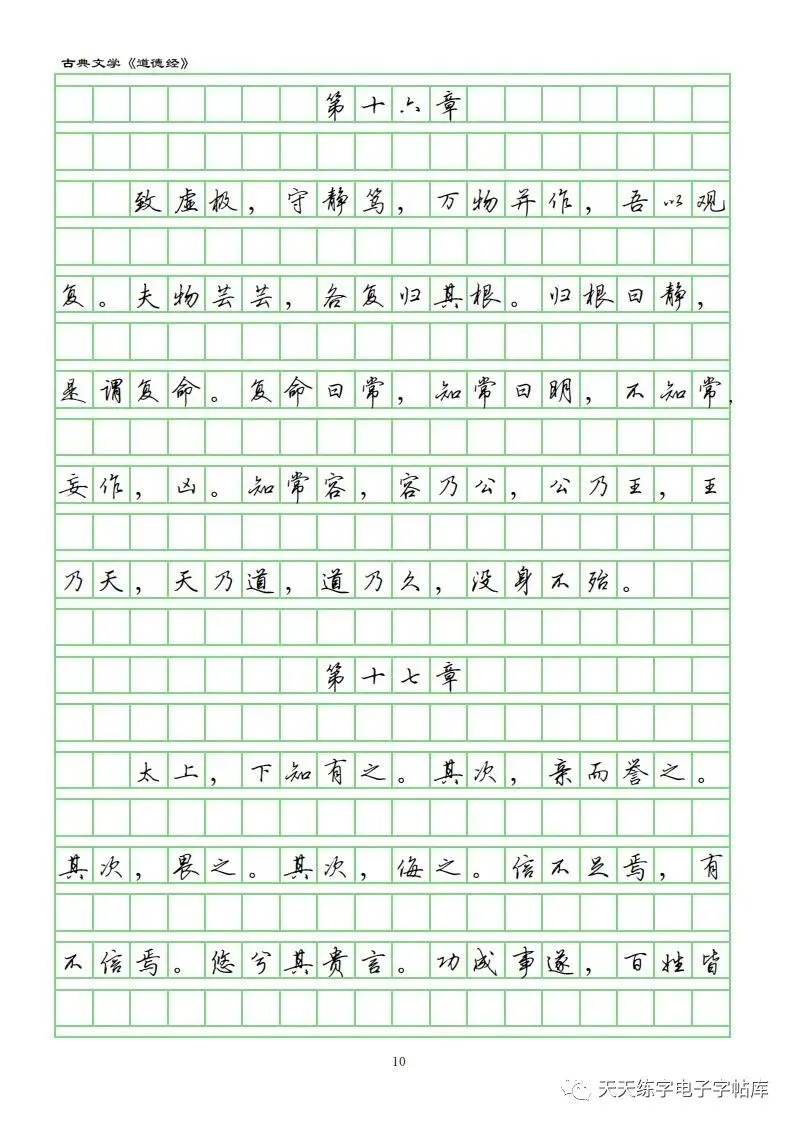 古典文学《道德经》
第十六章
致虚极，守静笃，万物并作，吾以观
复。夫物芸芸，各复归其根。归根曰静，
是谓复命。复命曰常，知常曰明，不知常，
妄作，凶。知常容，容乃公，公乃王，王
乃天，天乃道，道乃久，没身不殆。
第十七章
太上，下知有之。其次，亲而誉之。
其次，畏之。其次，侮之。信不足焉，有
不信焉。悠兮其贵言。功成事遂，百姓皆
10
天天练字电子字帖库